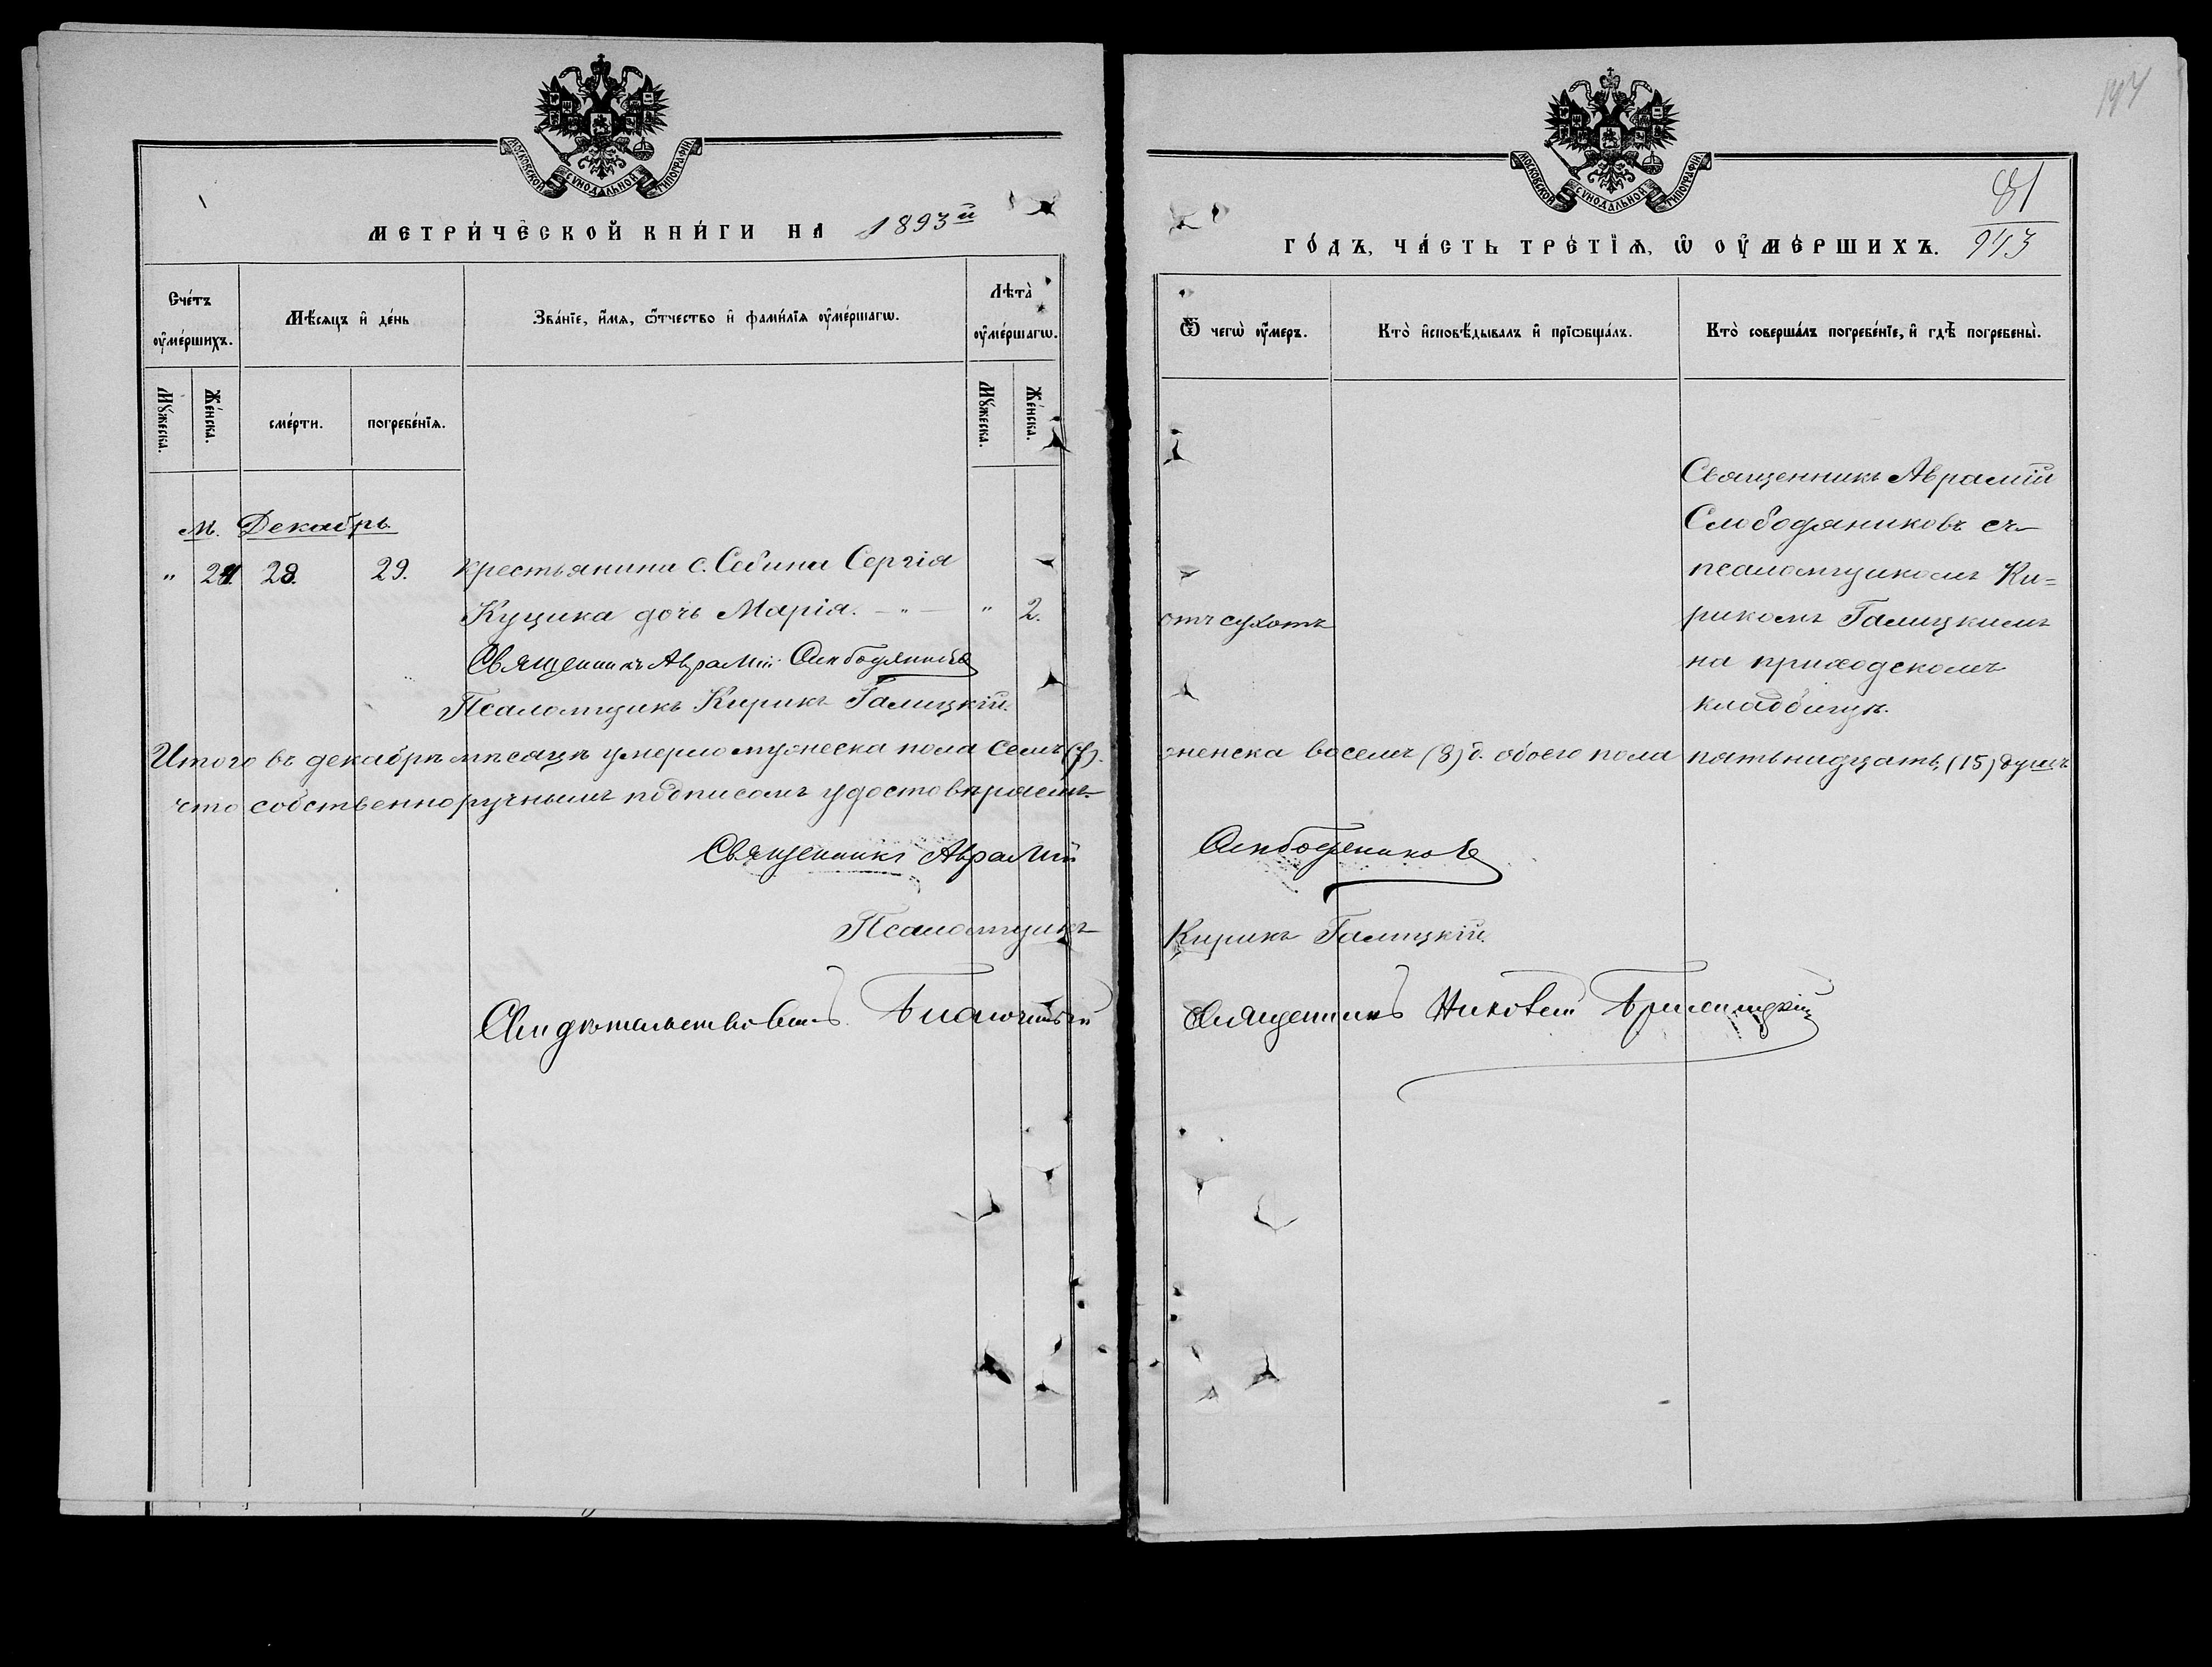 МОСКОВСКОЙ СѴНОДАЛЬНОЙ ТИПОГРАФІИ
МЕТРИ́ЧЕСКОЙ КНИ́ГИ НА 1893й
Сче́тъ ᲂу҆ме́ршихъ.
Мѣ́сяцъ и҆ де́нь
Зва́нїе, и҆́мѧ, ѻ҆́тчество и҆ фами́лїѧ ᲂу҆ме́ршагѡ.
Лѣта̀ ᲂу҆ме́ршагѡ.
Мꙋ́жеска.
Же́нска.
сме́рти.
погребе́нїѧ.
Мꙋ́жеска.
Же́нска.
м. Декабрь.
" 24. 28. 29. крестьянина с. Себина Сергія
Куцика дочь Марія. — " — " 2.
Священникъ Аврамій Слободяниковъ
Псаломщикъ Кирикъ Галицкій.
Итого въ декабрѣ мѣсяцѣ умерло мужеска пола семь (7).
что собственноручнымъ подписомъ удостовѣряемъ.
Священникъ Аврамій
Псаломщикъ
Свидѣтельствовалъ Благочинный
144
МОСКОВСКОЙ СѴНОДАЛЬНОЙ ТИПОГРАФІИ
81
943
ГО́ДЪ, ЧА́СТЬ ТРЕ́ТЇѦ, Ѡ҆ ОУ҆МЕ́РШИХЪ.
Ѿ чегѡ̀ ᲂу҆́меръ.
Кто̀ и҆сповѣ́дывалъ и҆ прїѡбща́лъ.
Кто̀ соверша́лъ погребе́нїе, и҆ гдѣ̀ погребены̀.
Священникъ Аврамій
Слободяниковъ съ
псаломщикомъ Ки=
отъ сухотъ
рикомъ Галицкимъ
на приходскомъ
кладбищѣ.
женска восемь (8) д. обоего пола пятьнадцать, (15) душъ
Слободяниковъ
Кирикъ Галицкій.
Священникъ